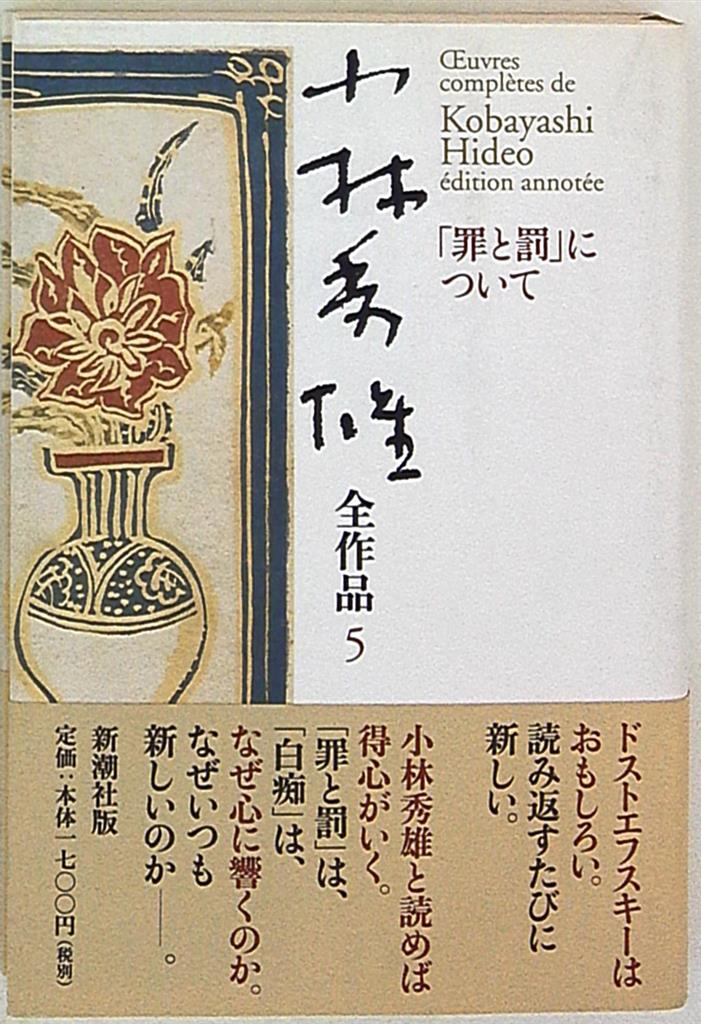 Œuvres
complètes de
Kobayashi
Hideo
édition annotée
「罪と罰」に
ついて
小林秀雄
全作品 5
ドストエフスキーは
おもしろい。
読み返すたびに
新しい。
小林秀雄と読めば
得心がいく。
「罪と罰」は、
「白痴」は、
なぜ心に響くのか。
なぜいつも
新しいのか──。
新潮社版
定価:本体一七〇〇円(税別)